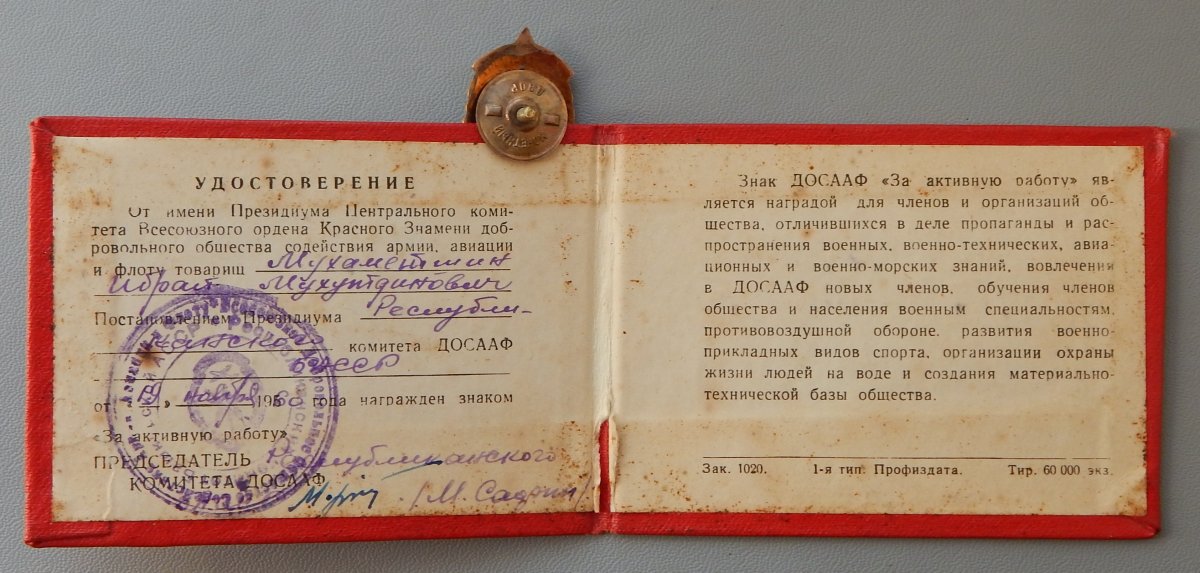 УДОСТОВЕРЕНИЕ
От имени Президиума Центрального коми-
тета Всесоюзного ордена Красного Знамени доб-
ровольного общества содействия армии, авиации
и флоту товарищ Мухаметшин
Ибрай Мухутдинович
Постановлением Президиума Республи-
канского комитета ДОСААФ
БАССР
от 19 ноября 1960 года награжден знаком
«За активную работу»
ПРЕДСЕДАТЕЛЬ Республиканского
КОМИТЕТА ДОСААФ
/М. Садрин/
Знак ДОСААФ «За активную работу» яв-
ляется наградой для членов и организаций об-
щества, отличившихся в деле пропаганды и рас-
пространения военных, военно-технических, авиа-
ционных и военно-морских знаний, вовлечения
в ДОСААФ новых членов, обучения членов
общества и населения военным специальностям,
противовоздушной обороне, развития военно-
прикладных видов спорта, организации охраны
жизни людей на воде и создания материально-
технической базы общества.
Зак. 1020. 1-я тип. Профиздата. Тир. 60 000 экз.